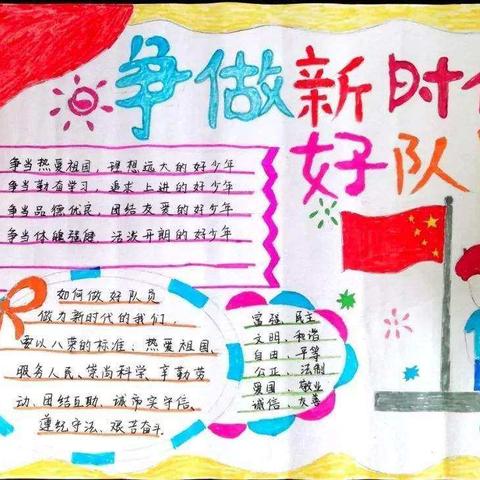 争做新时
好队
争当热爱祖国，理想远大的好少年
争当勤奋学习 追求上进的好少年
争当品德优良，团结友爱的好少年
争当体魄强健 活泼开朗的好少年
如何做好队员
做为新时代的我们，
要以八荣的标准、热爱祖国、
服务人民、崇尚科学、辛勤劳
动、团结互助、诚市实守信、
遵纪守法、艰苦奋斗.
富强、民主
文明、和谐
自由、平等
公正、法制
爱国 敬业
诚信、友善